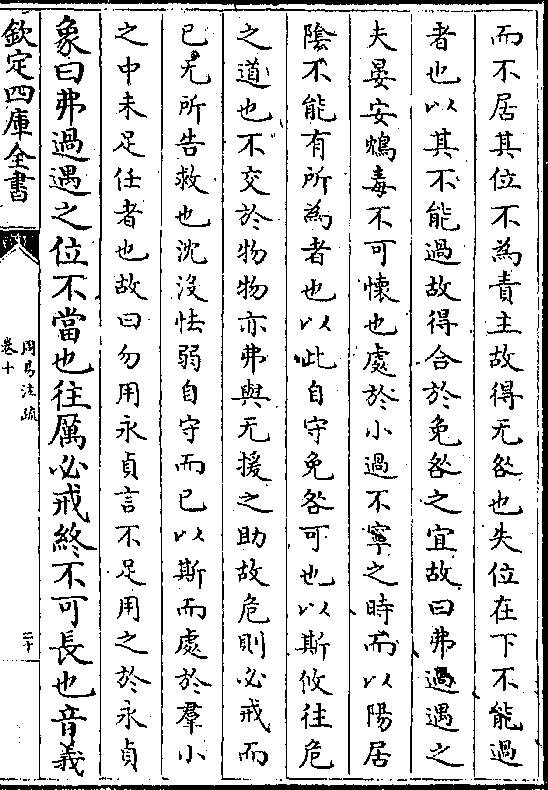 而不居其位不為責主故得无咎也失位在下不能過
者也以其不能過故得合於免咎之宜故曰弗過遇之
夫晏安鴆毒不可懷也處於小過不寧之時而以陽居
陰不能有所為者也以此自守免咎可也以斯攸往危
之道也不交於物物亦弗與无援之助故危則必戒而
已无所告救也沈沒怯弱自守而已以斯而處於羣小
之中未足任者也故曰勿用永貞言不足用之於永貞
象曰弗過遇之位不當也往厲必戒終不可長也音義
欽定四庫全書
周易注疏
卷十
二十